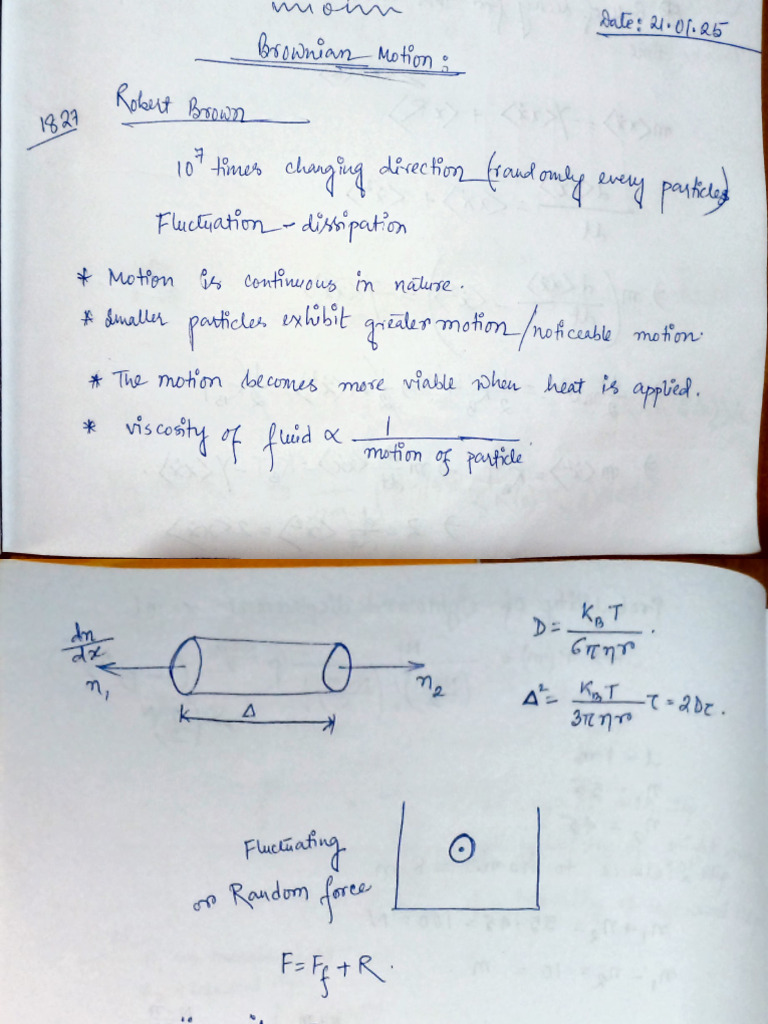 Date: 21.01.25
Brownian Motion:
1827 Robert Brown
10⁷ times changing direction (randomly every particles)
Fluctuation - dissipation
* Motion is continuous in nature.
* Smaller particles exhibit greater motion/noticeable motion.
* The motion becomes more viable when heat is applied.
* viscosity of fluid ∝ 1/motion of particle.
dn/dx
n₁
n₂
Δ
D = K_B T / 6πηr.
Δ² = K_B T / 3πηr τ = 2Dτ.
Fluctuating
or Random force
F = F_f + R.